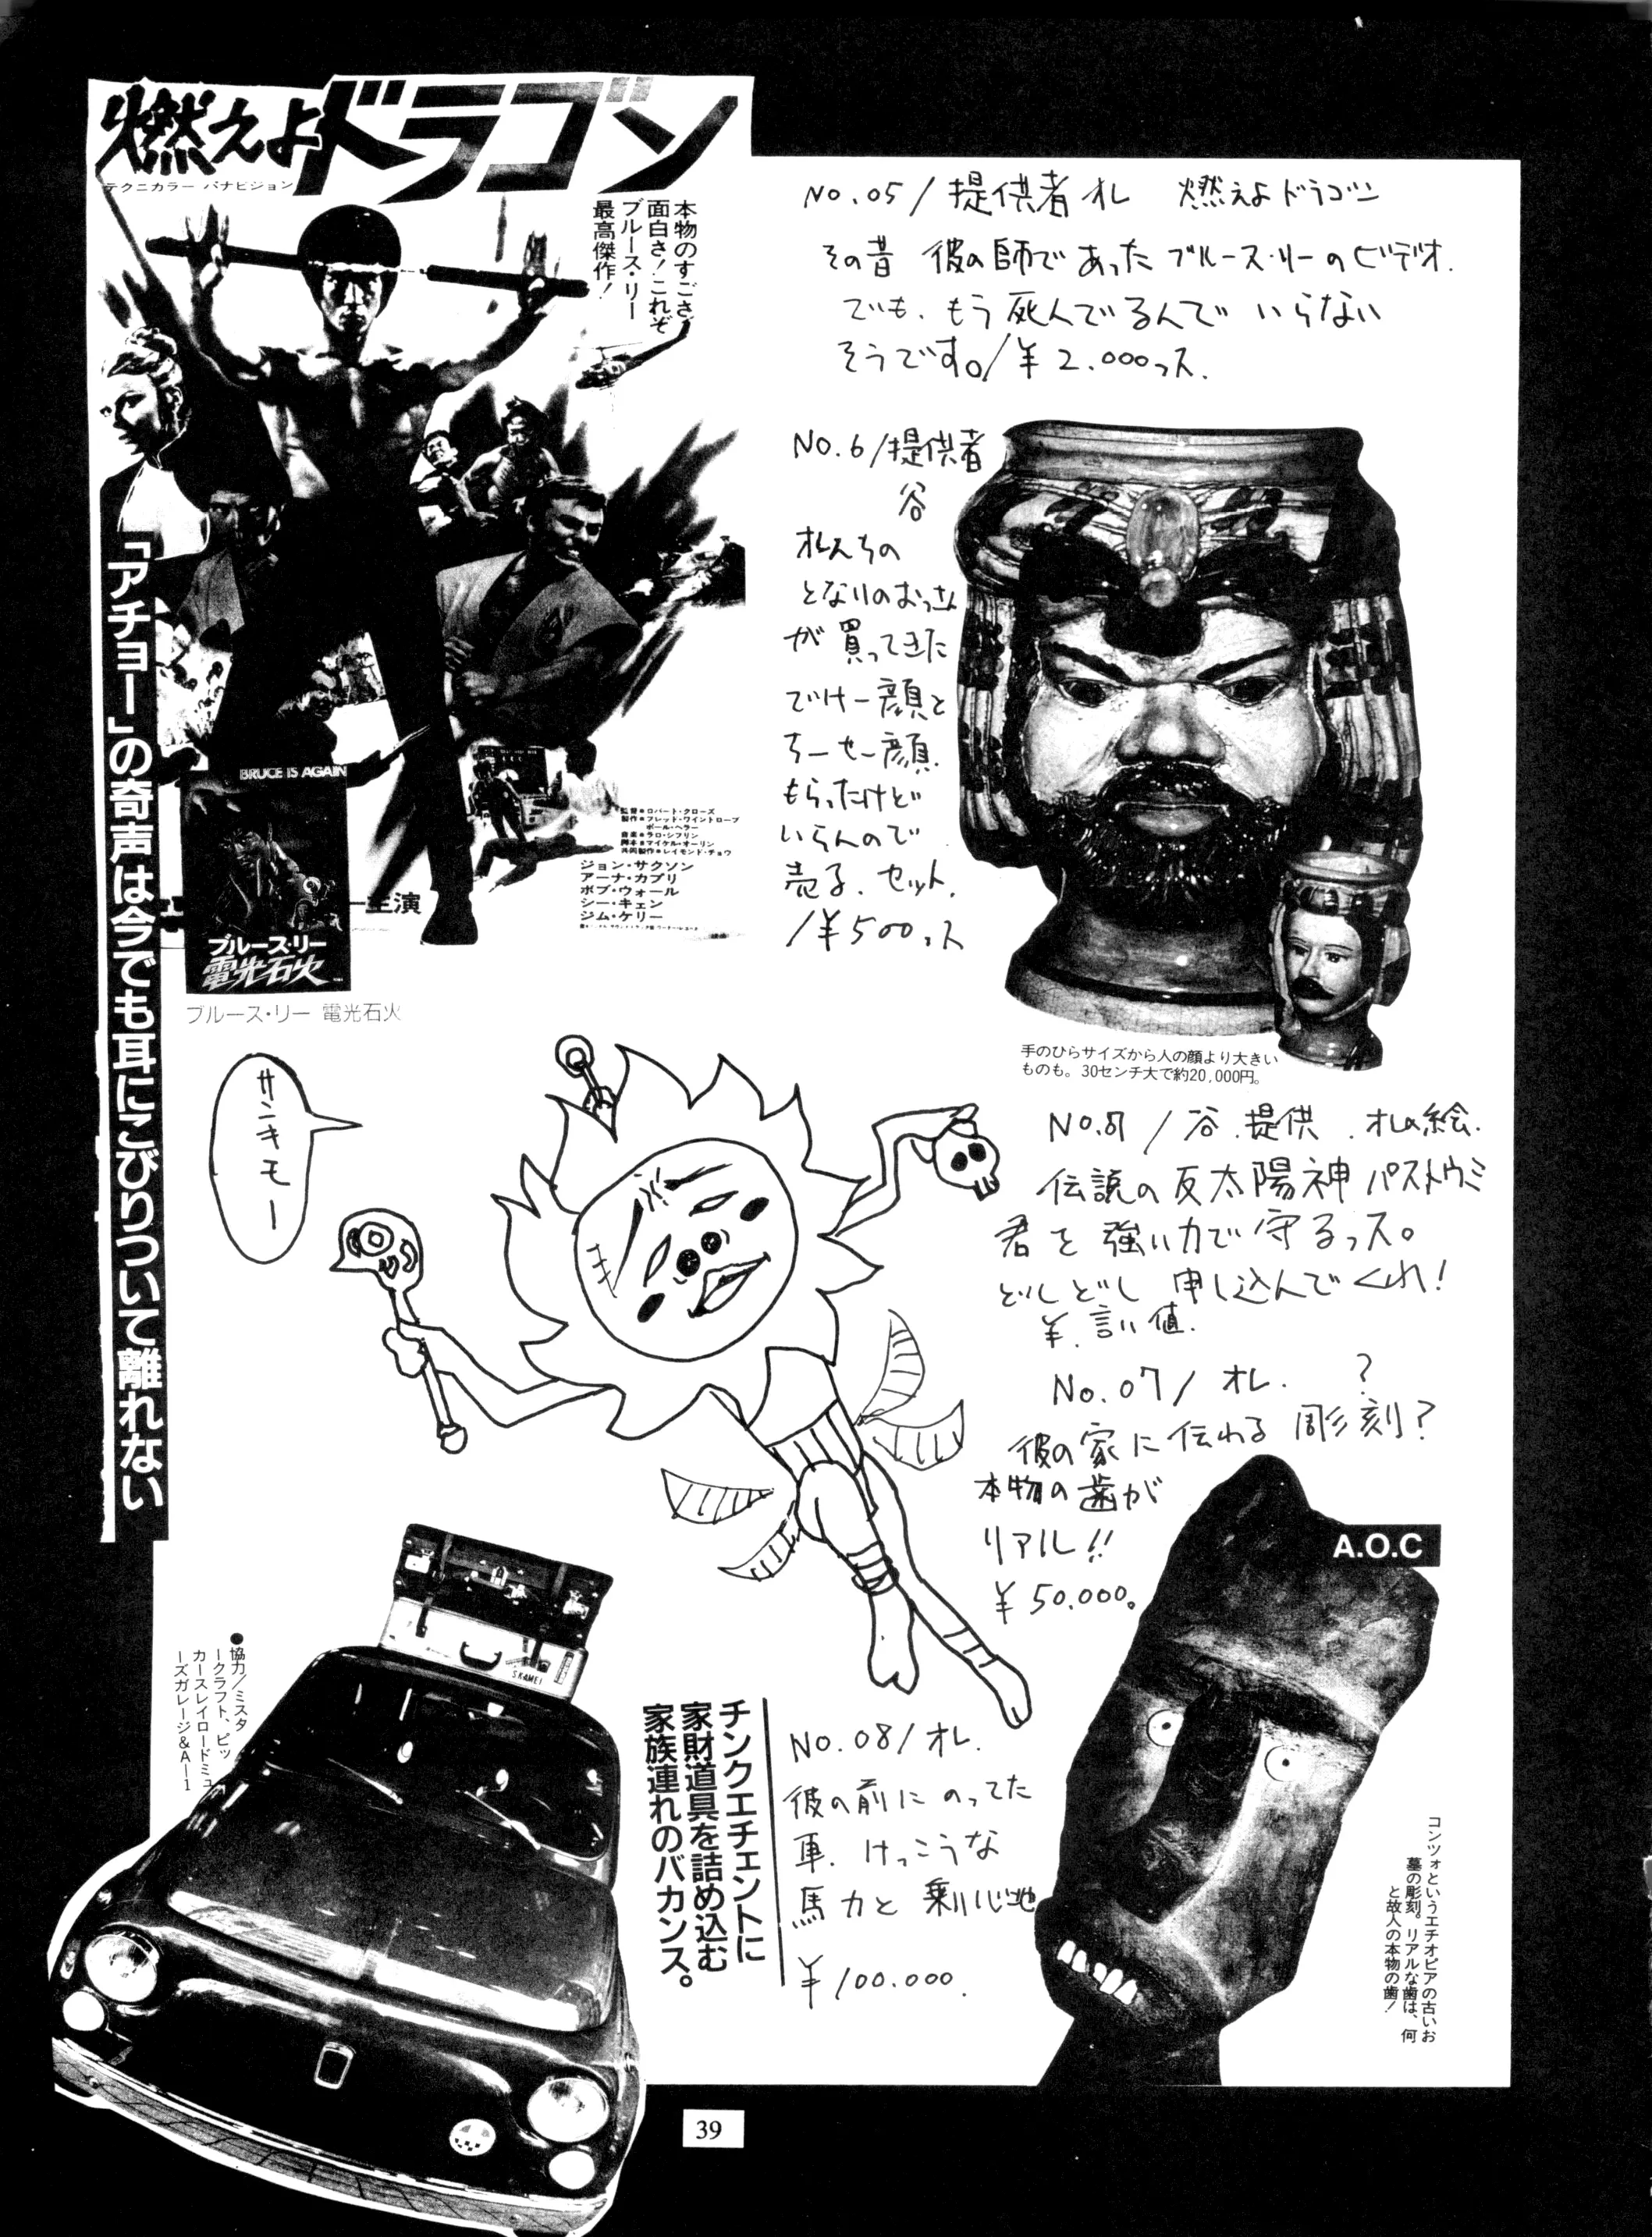 燃えよドラゴン
テクニカラー パナビジョン
本物のすごさ
面白さ!これぞ
ブルース・リー
最高傑作!
「アチョー」の奇声は今でも耳にこびりついて離れない
BRUCE IS AGAIN
ブルース・リー
電光石火
ブルース・リー 電光石火
主演
監督＝ロバート・クローズ
製作＝フレッド・ワイントローブ
ポール・ヘラー
音楽＝ラロ・シフリン
脚本＝マイケル・オーリン
共同製作＝レイモンド・チョウ
ジョン・サクソン
アーナ・カプリ
ボブ・ウォール
シー・キェン
ジム・ケリー
NO.05/提供者オレ 燃えよドラゴン
その昔 彼の師であったブルース・リーのビデオ.
でも.もう死んでるんで いらない
そうです。/¥2.000ッス.
NO.6/提供者
谷
オレんちの
となりのおっさん
が買ってきた
でけー顔と
ちーせー顔.
もらったけど
いらんので
売る.セット.
/¥500ッス
手のひらサイズから人の顔より大きい
ものも。30センチ大で約20,000円。
サンキモー
NO.8/谷.提供.オレの絵.
伝説の反太陽神パストウミ
君を強い力で守るッス。
どしどし申し込んでくれ!
¥.言い値.
No.07/オレ. ?
彼の家に伝わる彫刻?
本物の歯が
リアル!!
¥50.000。
A.O.C
コンツォというエチオピアの古いお
墓の彫刻。リアルな歯は、何
と故人の本物の歯!
●協力/ミスタ
ークラフト、ビッ
カースレイロードミュ
ーズガレージ&A-1
SKAMEI
チンクエチェントに
家財道具を詰め込む
家族連れのバカンス。
NO.08/オレ.
彼の前にのってた
車.けっこうな
馬力と乗り心地
¥100.000.
39